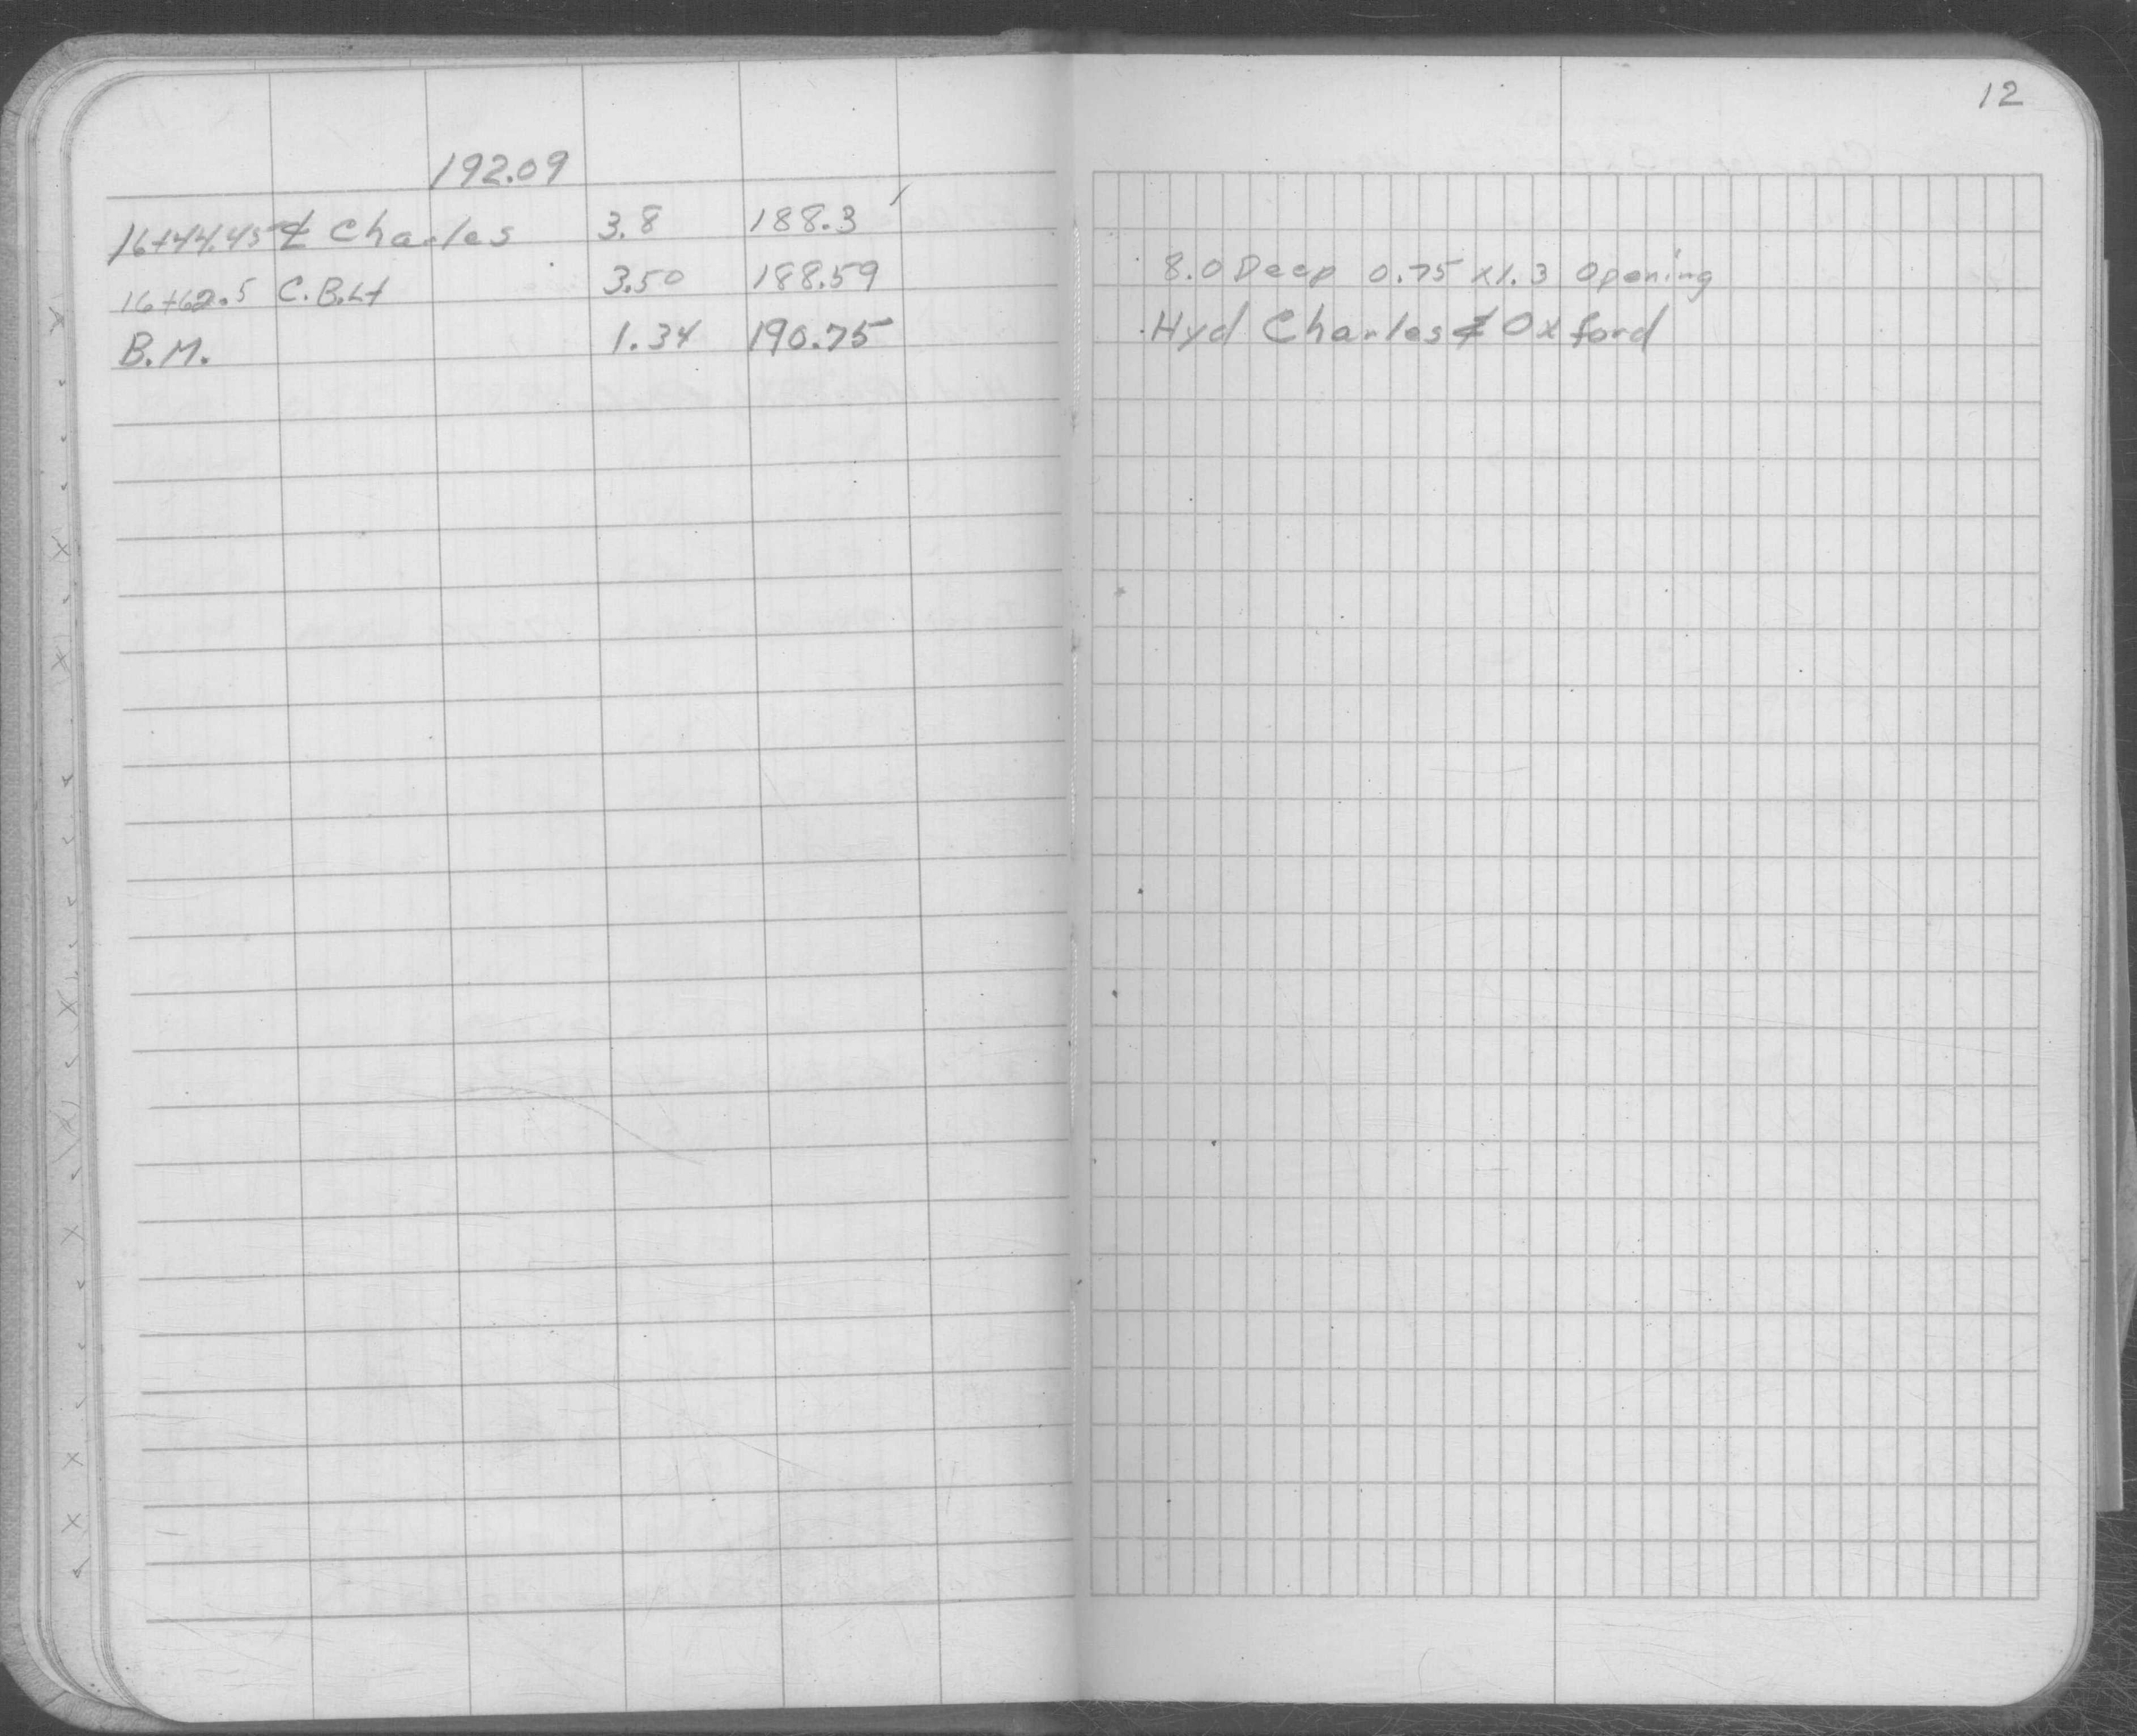 12
192.09
16+44.45 ⅊ Charles 3.8 188.3
16+62.5 C.B.Lt 3.50 188.59 8.0 Deep 0.75 x 1.3 Opening
B.M. 1.34 190.75 Hyd Charles & Oxford